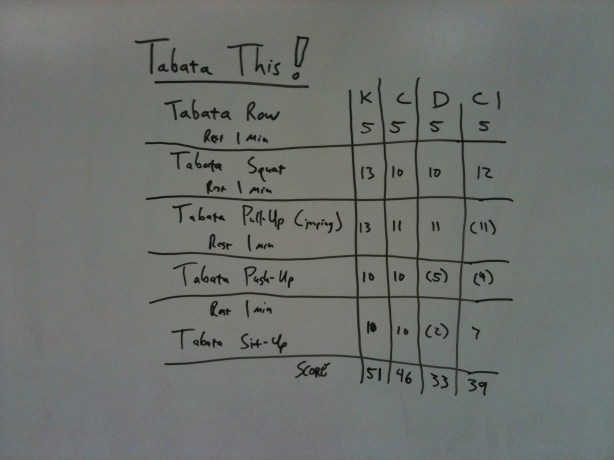 Tabata This!
K C D C1
Tabata Row 5 5 5 5
Rest 1 min
Tabata Squat 13 10 10 12
Rest 1 min
Tabata Pull-Up (jumping) 13 11 11 (11)
Rest 1 min
Tabata Push-Up 10 10 (5) (4)
Rest 1 min
Tabata Sit-Up 10 10 (2) 7
SCORE 51 46 33 39